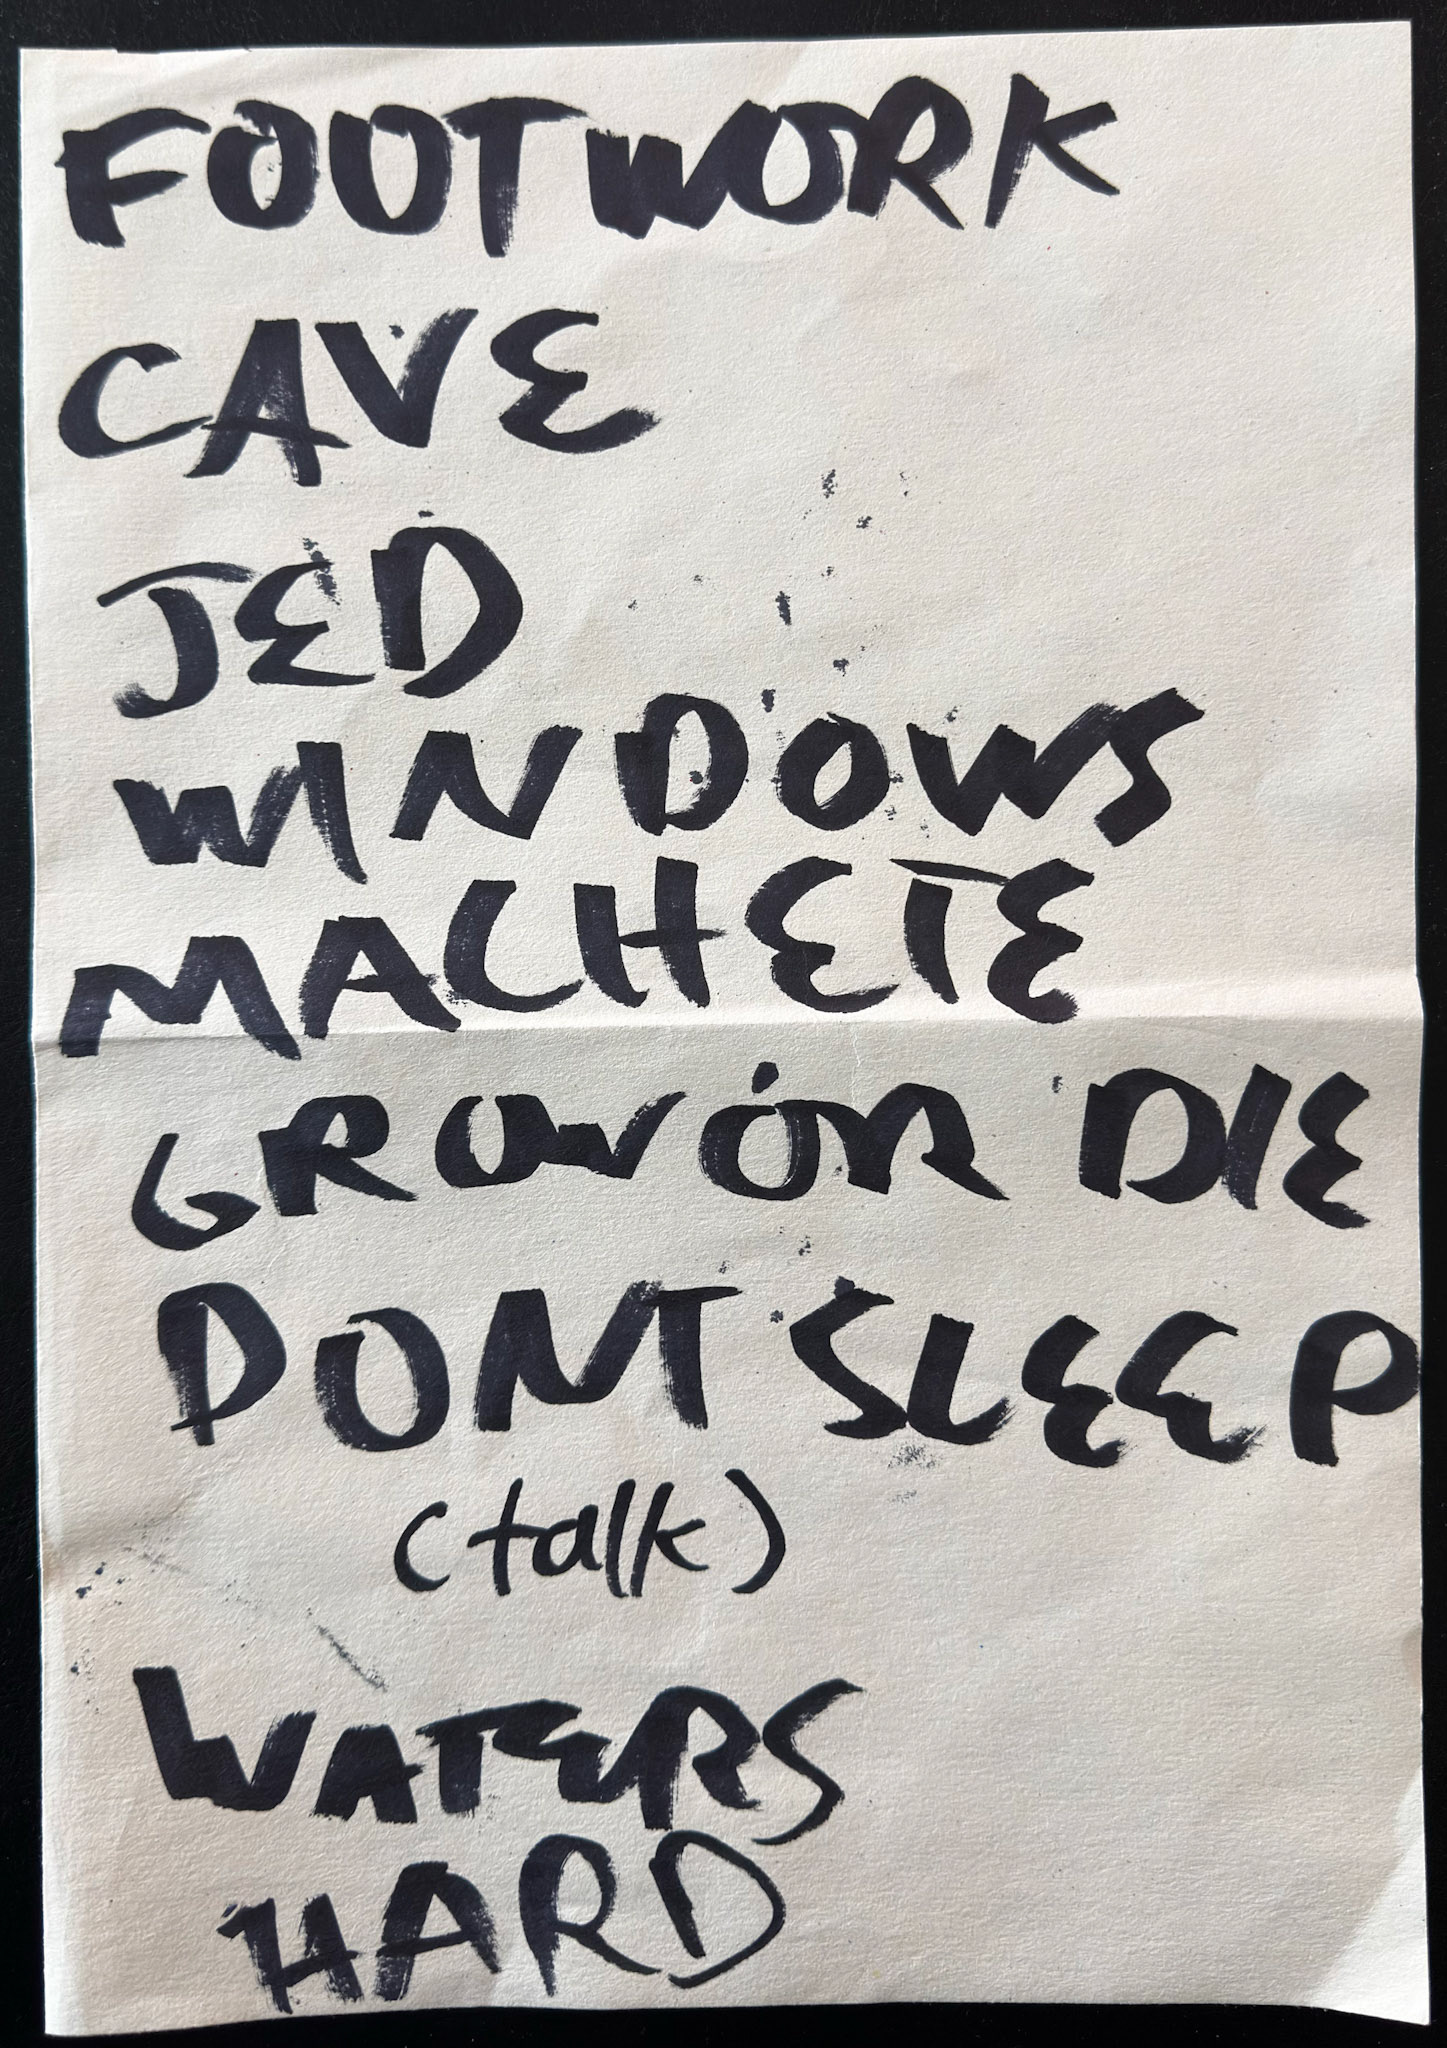 FOOTWORK
CAVE
JED
WINDOWS
MACHETE
GROW OR DIE
DONT SLEEP
(talk)
WATERS
HARD